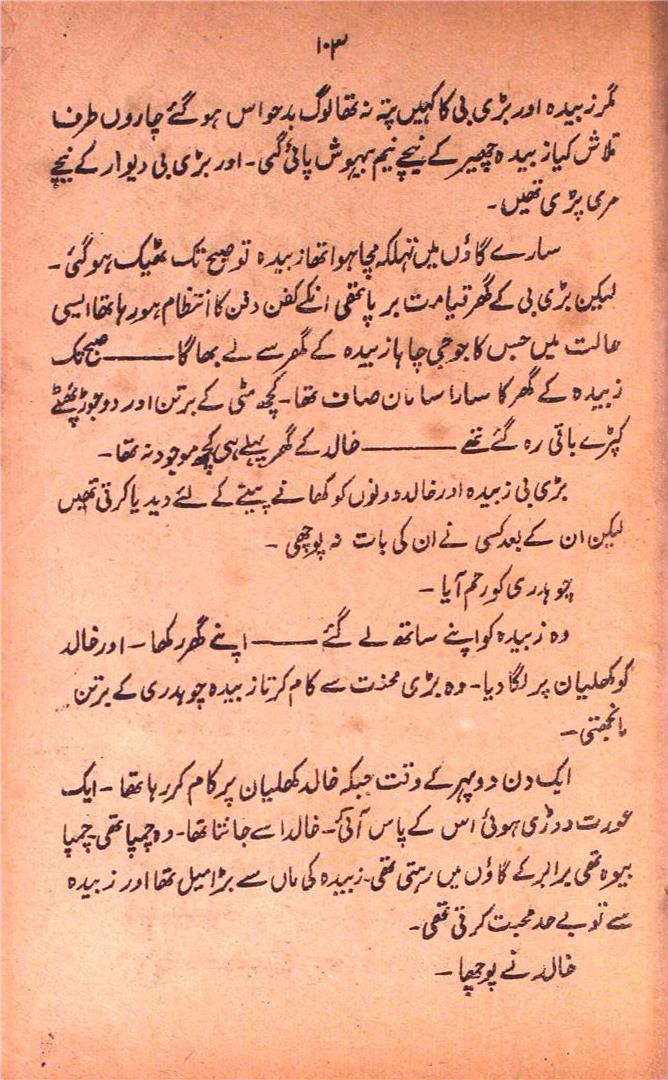 ۱۰۳
مگر زبیدہ اور بڑی بی کا کہیں پتہ نہ تھا لوگ بدحواس ہو گئے چاروں طرف
تلاش کیا زبیدہ چھپر کے نیچے نیم بیہوش پائی گئی۔ اور بڑی بی دیوار کے نیچے
مری پڑی تھیں۔
سارے گاؤں میں تہلکہ مچا ہوا تھا زبیدہ تو صبح تک ٹھیک ہو گئی۔
لیکن بڑی بی کے گھر قیامت برپا تھی انکے کفن دفن کا انتظام ہو رہا تھا ایسی
حالت میں جس کا جو جی چاہا زبیدہ کے گھر سے لے بھاگا ——— صبح تک
زبیدہ کے گھر کا سارا سامان صاف تھا۔ کچھ مٹی کے برتن اور دو جوڑ پھٹے
کپڑے باقی رہ گئے تھے ——— خالد کے گھر پہلے ہی کچھ موجود نہ تھا۔
بڑی بی زبیدہ اور خالد دونوں کو کھانے پینے کے لئے دیدیا کرتی تھیں
لیکن ان کے بعد کسی نے ان کی بات نہ پوچھی ۔
چوہدری کو رحم آیا ۔
وہ زبیدہ کو اپنے ساتھ لے گئے ——— اپنے گھر رکھا۔ اور خالد
کو کھلیان پر لگا دیا۔ وہ بڑی محنت سے کام کرتا زبیدہ چوہدری کے برتن
مانجھتی۔
ایک دن دوپہر کے وقت جبکہ خالد کھلیان پر کام کر رہا تھا۔ ایک
عورت دوڑی ہوئی اس کے پاس آئی۔ خالد اسے جانتا تھا۔ وہ چمپا تھی۔ چمپا
بیوہ تھی برابر کے گاؤں میں رہتی تھی۔ زبیدہ کی ماں سے بڑا میل تھا اور زبیدہ
سے تو بے حد محبت کرتی تھی۔
خالد نے پوچھا ۔